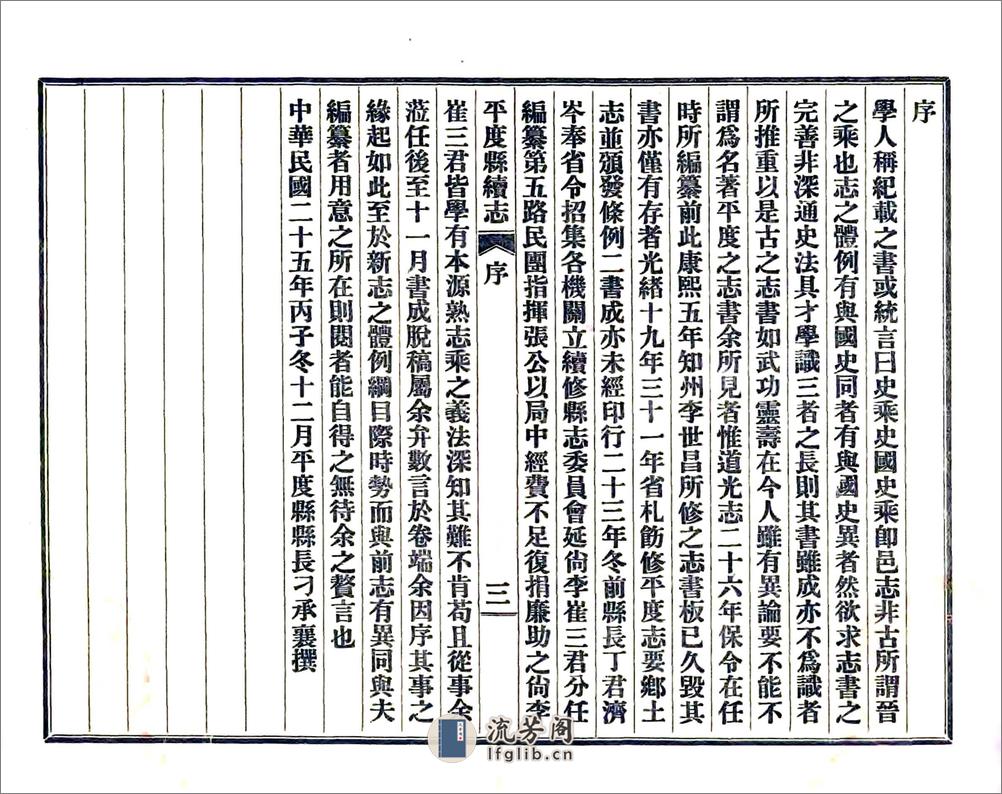 序
學人稱紀載之書或統言曰史乘史國史乘卽邑志非古所謂晉
之乘也志之體例有與國史同者有與國史異者然欲求志書之
完善非深通史法具才學識三者之長則其書雖成亦不爲識者
所推重以是古之志書如武功靈壽在今人雖有異論要不能不
謂爲名著平度之志書余所見者惟道光志二十六年保令在任
時所編纂前此康熙五年知州李世昌所修之志書板已久毀其
書亦僅有存者光緒十九年三十一年省札飭修平度志要鄉土
志並頒發條例二書成亦未經印行二十三年冬前縣長丁君濟
岑奉省令招集各機關立續修縣志委員會延尙李崔三君分任
編纂第五路民團指揮張公以局中經費不足復捐廉助之尙李
平度縣續志 序 三
崔三君皆學有本源熟志乘之義法深知其難不肯苟且從事余
蒞任後至十一月書成脫稿屬余弁數言於卷端余因序其事之
緣起如此至於新志之體例綱目際時勢而與前志有異同與夫
編纂者用意之所在則閱者能自得之無待余之贅言也
中華民國二十五年丙子冬十二月平度縣縣長刁承襄撰
流芳阁
lfglib.cn